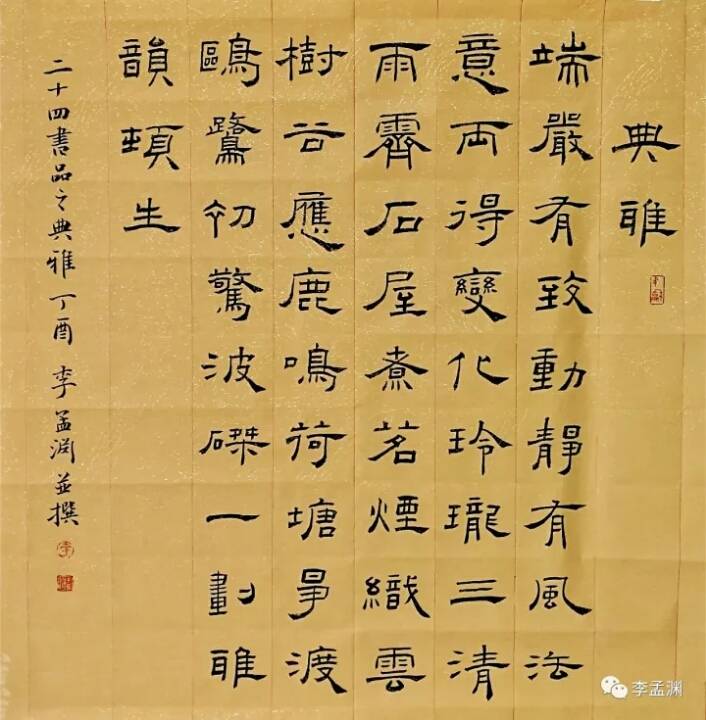 典雅
端嚴有致動靜有風法
意両得變化玲瓏三清
雨霽石屋煮茗煙織雲
樹谷應鹿鳴荷塘爭渡
鷗鷺初驚波磔一劃雅
韻頓生
二十四書品之典雅丁酉李孟淵並撰
李孟渊